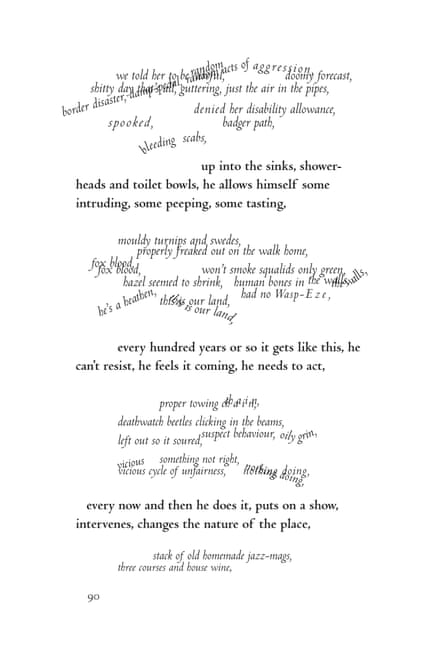 random acts of aggression,
we told her to be careful, doomy forecast,
shitty day guttering, just the air in the pipes,
border disaster,
denied her disability allowance,
spooked, badger path,
bleeding scabs,
up into the sinks, shower-
heads and toilet bowls, he allows himself some
intruding, some peeping, some tasting,
mouldy turnips and swedes,
properly freaked out on the walk home,
fox blood,
fox blood, won't smoke squalids only green,
hazel seemed to shrink, human bones in the walls,
he's a heathen, this is our land, had no Wasp-Eze,
this is our land,
every hundred years or so it gets like this, he
can't resist, he feels it coming, he needs to act,
proper towing chain,
deathwatch beetles clicking in the beams,
left out so it soured, suspect behaviour, oily grin,
vicious something not right,
vicious cycle of unfairness, nothing doing,
every now and then he does it, puts on a show,
intervenes, changes the nature of the place,
stack of old homemade jazz-mags,
three courses and house wine,
90